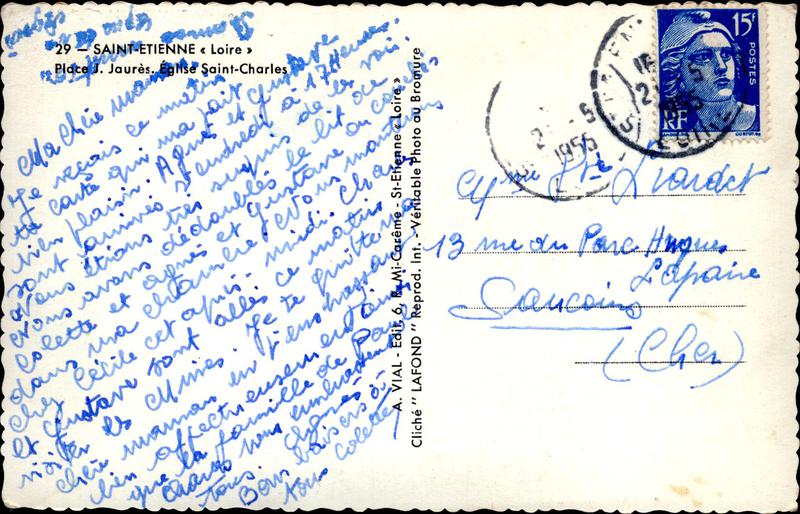 29 — SAINT-ETIENNE « Loire »
Place J. Jaurès. Église Saint-Charles
Ma chère maman
Je reçois ce matin
ta carte qui m'a fait
bien plaisir. Agnès et Gustave
sont arrivés vendredi à 17 heures
Nous étions très surpris de les voir
Nous avons dédoublés le lit de
Colette et agnès et Gustave ont couchés
dans ma chambre. Nous montons
chez Cécile cet après-midi. Charles
et Gustave sont allés ce matin
visiter les Mines. Je te quitte ma
chère maman en t'embrassant
bien affectueusement ainsi
que la famille de Paul
Charles vous embrasse
tous. Agnès
Bons baisers à
tous Colette
A. VIAL - Edit. 6, R. Mi-Carême. St-Etienne « Loire »
Cliché " LAFOND " Reprod. Int. - Véritable Photo au Bromure
15F
POSTES
RF
1955
LOIRE
1955
Mme Vve Liardet
13 rue du Parc Hugues
Lapaire
Sancoins
(Cher)